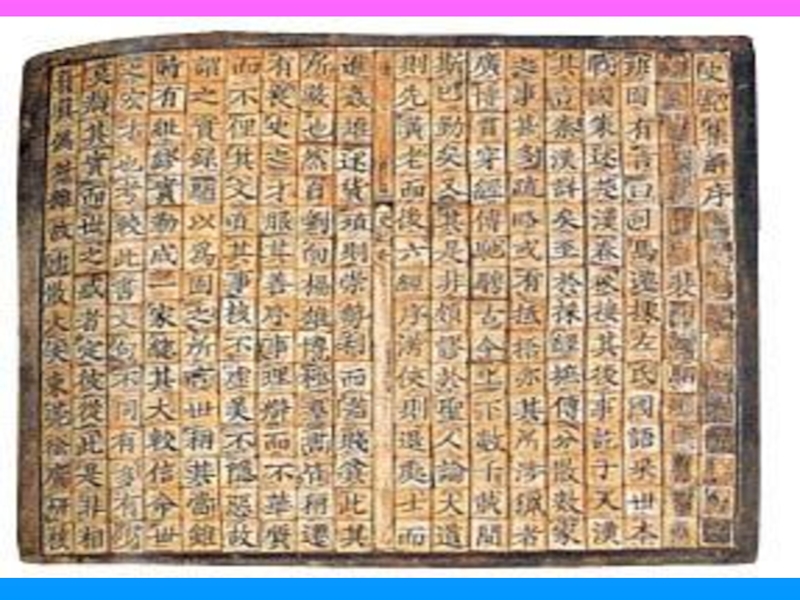 史記集解序
裴駰
班固有言曰司馬遷據左氏國語采世本
戰國策述楚漢春秋接其後事訖于天漢
其言秦漢詳矣至於採經摭傳分散數家
之事甚多疏略或有抵捂亦其所涉獵者
廣博貫穿經傳馳騁古今上下數千載間
斯已勤矣又其是非頗謬於聖人論大道
則先黃老而後六經序游俠則退處士而
進姦雄述貨殖則崇勢利而羞賤貧此其
所蔽也然自劉向楊雄博極羣書皆稱遷
有良史之才服其善序事理辯而不華質
而不俚其文直其事核不虛美不隱惡故
謂之實錄駰以爲固之所言世稱其當雖
時有紕繆實勒成一家總其大較信命世
之宏才也考較此書文句不同有多有少
莫辯其實而世之惑者定彼從此是非相
貿真偽舛雜故中散大夫東莞徐廣研核